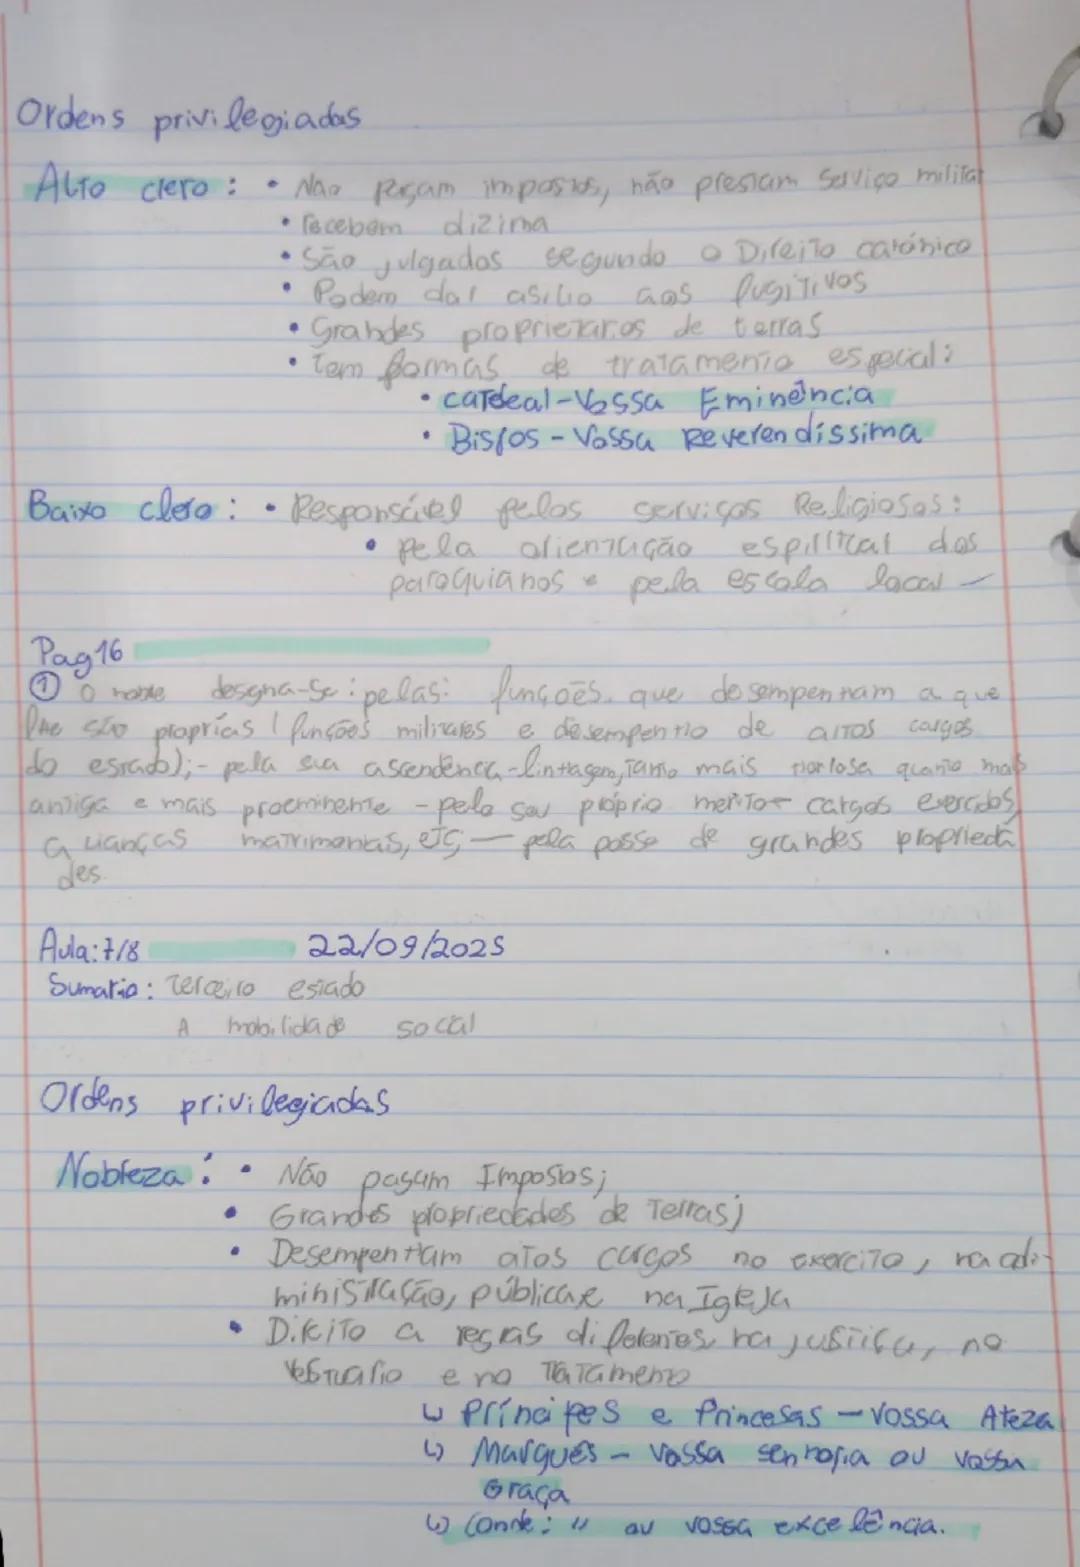 Ordens privilegiadas
Alto clero : • Não pagam impostos, não prestam serviço militar
• recebem dizima
• São julgados segundo o Direito canónico
• Podem dar asilio aos fugitivos
• Grandes proprietaros de terras
• Tem formas de tratamento especial:
• cardeal - Vossa Eminência
• Bispos - Vossa Reverendíssima
Baixo clero : • Responsável pelos serviços Religiosos:
• pela orientação espiritual dos
paroquianos e pela escola local
Pag 16
① O nobre designa-se : pelas: funções que desempenham a que
lhe são proprías ( funções militares e desempenho de altos cargos
do estado); - pela sua ascendência - linhagem, tanto mais horlosa quanto mais
antiga e mais proeminente - pelo seu próprio merito - cargos exercidos,
alianças matrimoniais, etc; — pela posse de grandes proprieda
des.
Aula: 7/8 22/09/2025
Sumario : Terceiro estado
A mobilidade social
Ordens privilegiadas
Nobreza : • Não pagam Impostos;
• Grandes propriedades de Terras;
• Desempenham altos cargos no exercito, na adi-
ministração, pública e na Igreja
• Direito a regras diferentes na justiça, no
vestuario e no Tratamento
↳ Príncipes e Princesas - Vossa Alteza
↳ Marquês - Vossa senhoria ou vossa
Graça
↳ Conde : " ou vossa excelência.